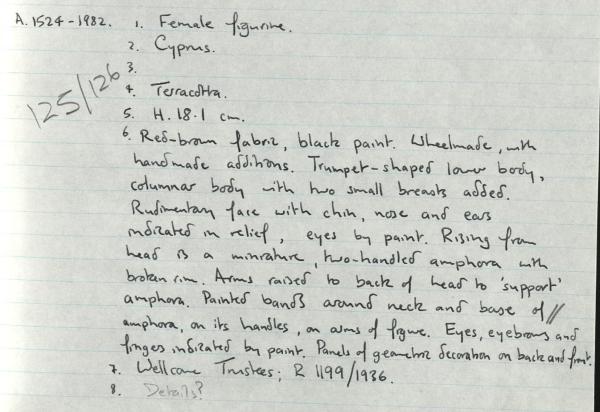 A.1524-1982. 1. Female figurine.
2. Cyprus.
3.
125/126
4. Terracotta.
5. H. 18.1 cm.
6. Red-brown fabric, black paint. Wheelmade, with
handmade additions. Trumpet-shaped lower body,
columnar body with two small breasts added.
Rudimentary face with chin, nose and ears
indicated in relief, eyes by paint. Rising from
head is a miniature, two-handled amphora with
broken rim. Arms raised to back of head to 'support'
amphora. Painted bands around neck and base of //
amphora, on its handles, on arms of figure. Eyes, eyebrows and
fingers indicated by paint. Panels of geometric decoration on back and front.
7. Wellcome Trustees; R 1199/1936.
8. Details?